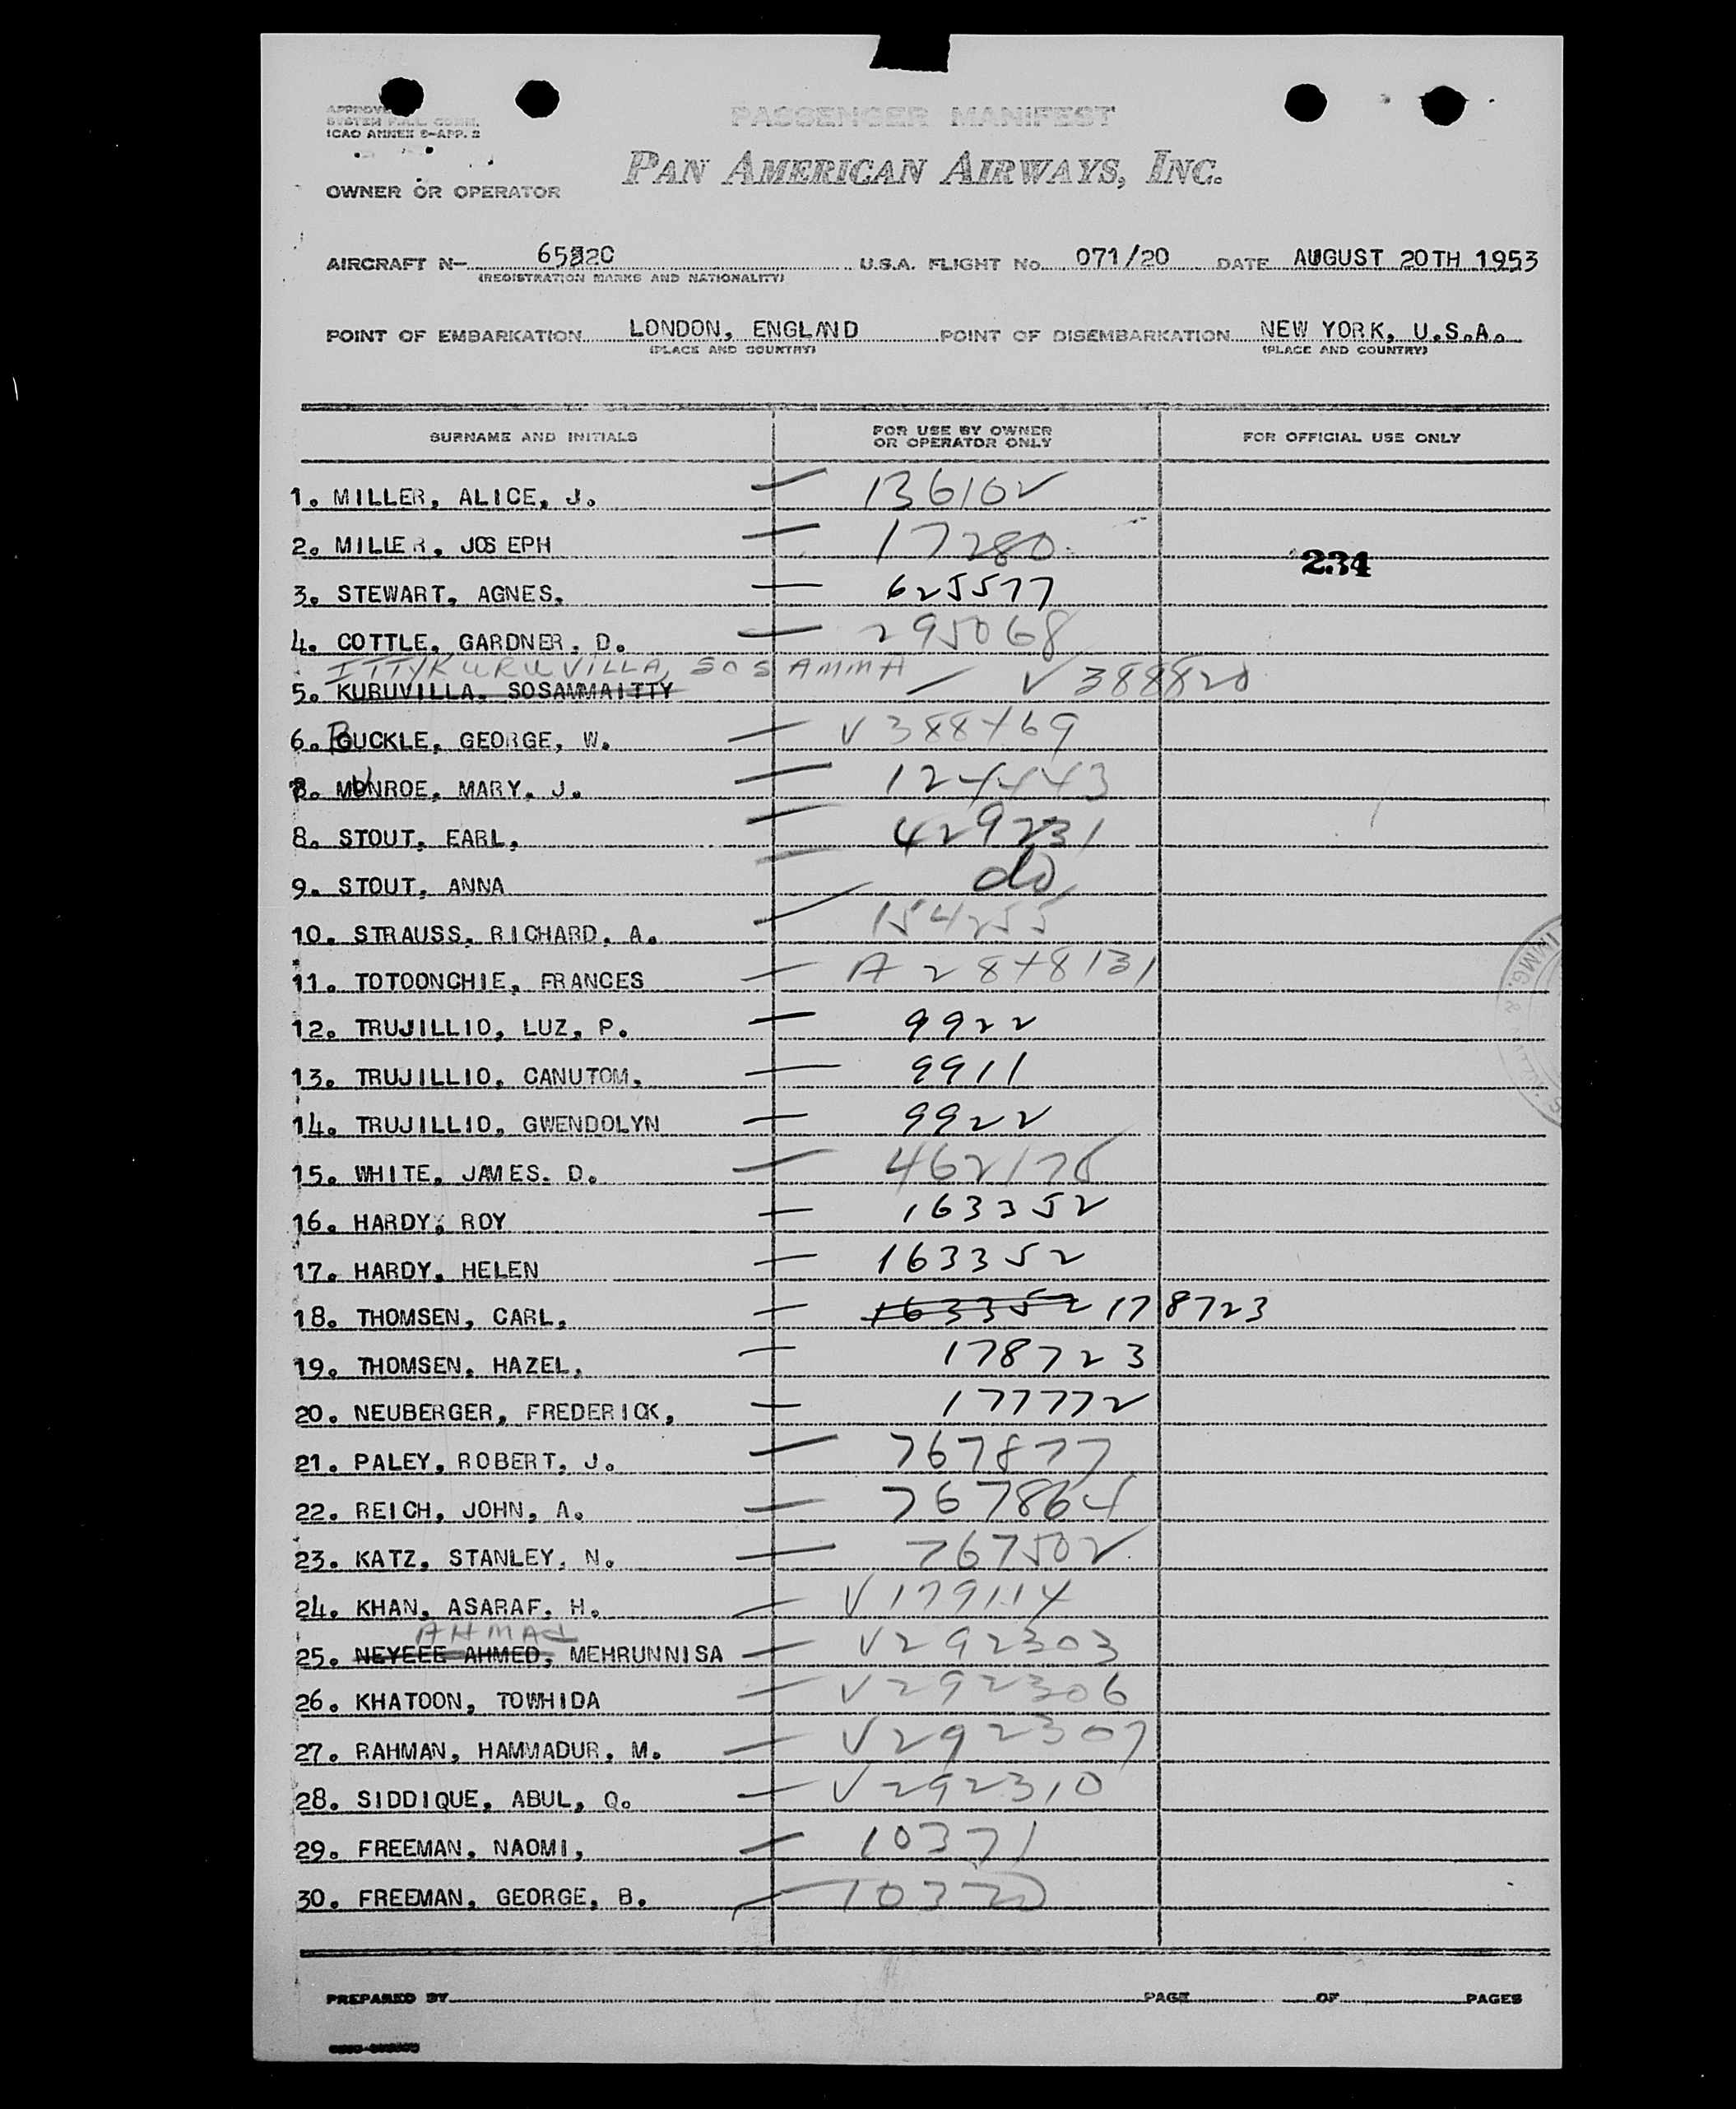 PASSENGER MANIFEST
SYSTEM
ICAO ANNEX 9-APP. 2
PAN AMERICAN AIRWAYS, INC.
OWNER OR OPERATOR
AIRCRAFT N- U.S.A. FLIGHT No. 071/20 DATE AUGUST 20TH 1953
(REGISTRATION MARKS AND NATIONALITY)
POINT OF EMBARKATION LONDON, ENGLAND POINT OF DISEMBARKATION NEW YORK, U.S.A.
(PLACE AND COUNTRY) (PLACE AND COUNTRY)
SURNAME AND INITIALS FOR USE BY OWNER OR OPERATOR ONLY FOR OFFICIAL USE ONLY
1. MILLER, ALICE, J. — 136102
2. MILLER, JOSEPH — 17280
234
3. STEWART, AGNES, — 625577
4. COTTLE, GARDNER, D. — 295068
ITTYKURUVILLA, SOSAMMA
5. KURUVILLA, SOSAMMAITTY — V 388820
6. BUCKLE, GEORGE, W. — V 388469
7. MUNROE, MARY, J. — 124443
8. STOUT, EARL, — 429231
9. STOUT, ANNA — do
10. STRAUSS, RICHARD, A. — 154255
11. TOTOONCHIE, FRANCES — A 2848131
12. TRUJILLIO, LUZ, P. — 9922
13. TRUJILLIO, CANUTOM, — 9911
14. TRUJILLIO, GWENDOLYN — 9922
15. WHITE, JAMES. D. — 462176
16. HARDY, ROY — 163352
17. HARDY, HELEN — 163352
18. THOMSEN, CARL, — 163352 178723
19. THOMSEN, HAZEL, — 178723
20. NEUBERGER, FREDERICK, — 177772
21. PALEY, ROBERT, J. — 767877
22. REICH, JOHN, A. — 767864
23. KATZ, STANLEY, N. — 767502
24. KHAN, ASARAF, H. — V179114
AHMAD
25. NEYEEE AHMED, MEHRUNNISA — V292303
26. KHATOON, TOWHIDA — V292306
27. RAHMAN, HAMMADUR, M. — V292307
28. SIDDIQUE, ABUL, Q. — V292310
29. FREEMAN, NAOMI, — 10371
30. FREEMAN, GEORGE, B. — 10370
IMMG. &
PREPARED BY PAGE OF PAGES